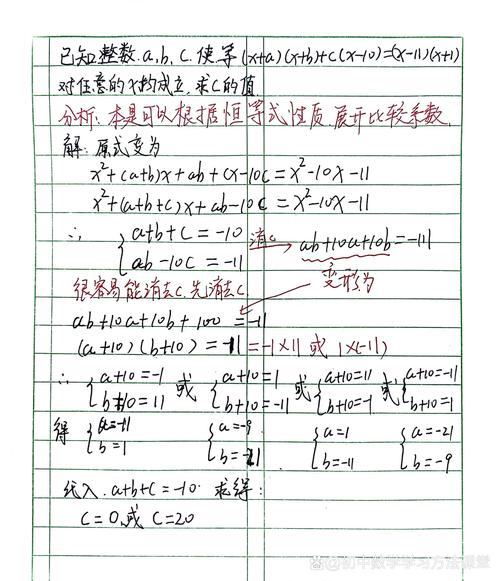 已知整数.a,b,c.使等(x+a)(x+b)+c(x-10)=(x-11)(x+1)
对任意的x均成立,求c的值.
分析:本是可以根据恒等式性质展开比较系数.
解:原式变为
x²+(a+b)x+ab+cx-10c=x²-10x-11
x²+(a+b+c)x+ab-10c=x²-10x-11
∴ {a+b+c=-10 消c → ab+10a+10b=-111
{ab-10c=-11
很容易能消去c.先消去c 变形为
ab+10a+10b+100=-11
(a+10)(b+10)=-11=-1×11或 1×(-11)
∴ {a+10=-1 或 {a+10=1 或 {a+10=11 或 {a+10=-11
{b+10=11 {b+10=-11 {b+10=-1 {b+10=1
得 {a=-11 {a=-9 {a=1 {a=-21
{b=1 {b=-21 {b=-11 {b=-9
代入.a+b+c=-10.求得:
c=0.或 c=20
@初中数学学习方法课堂